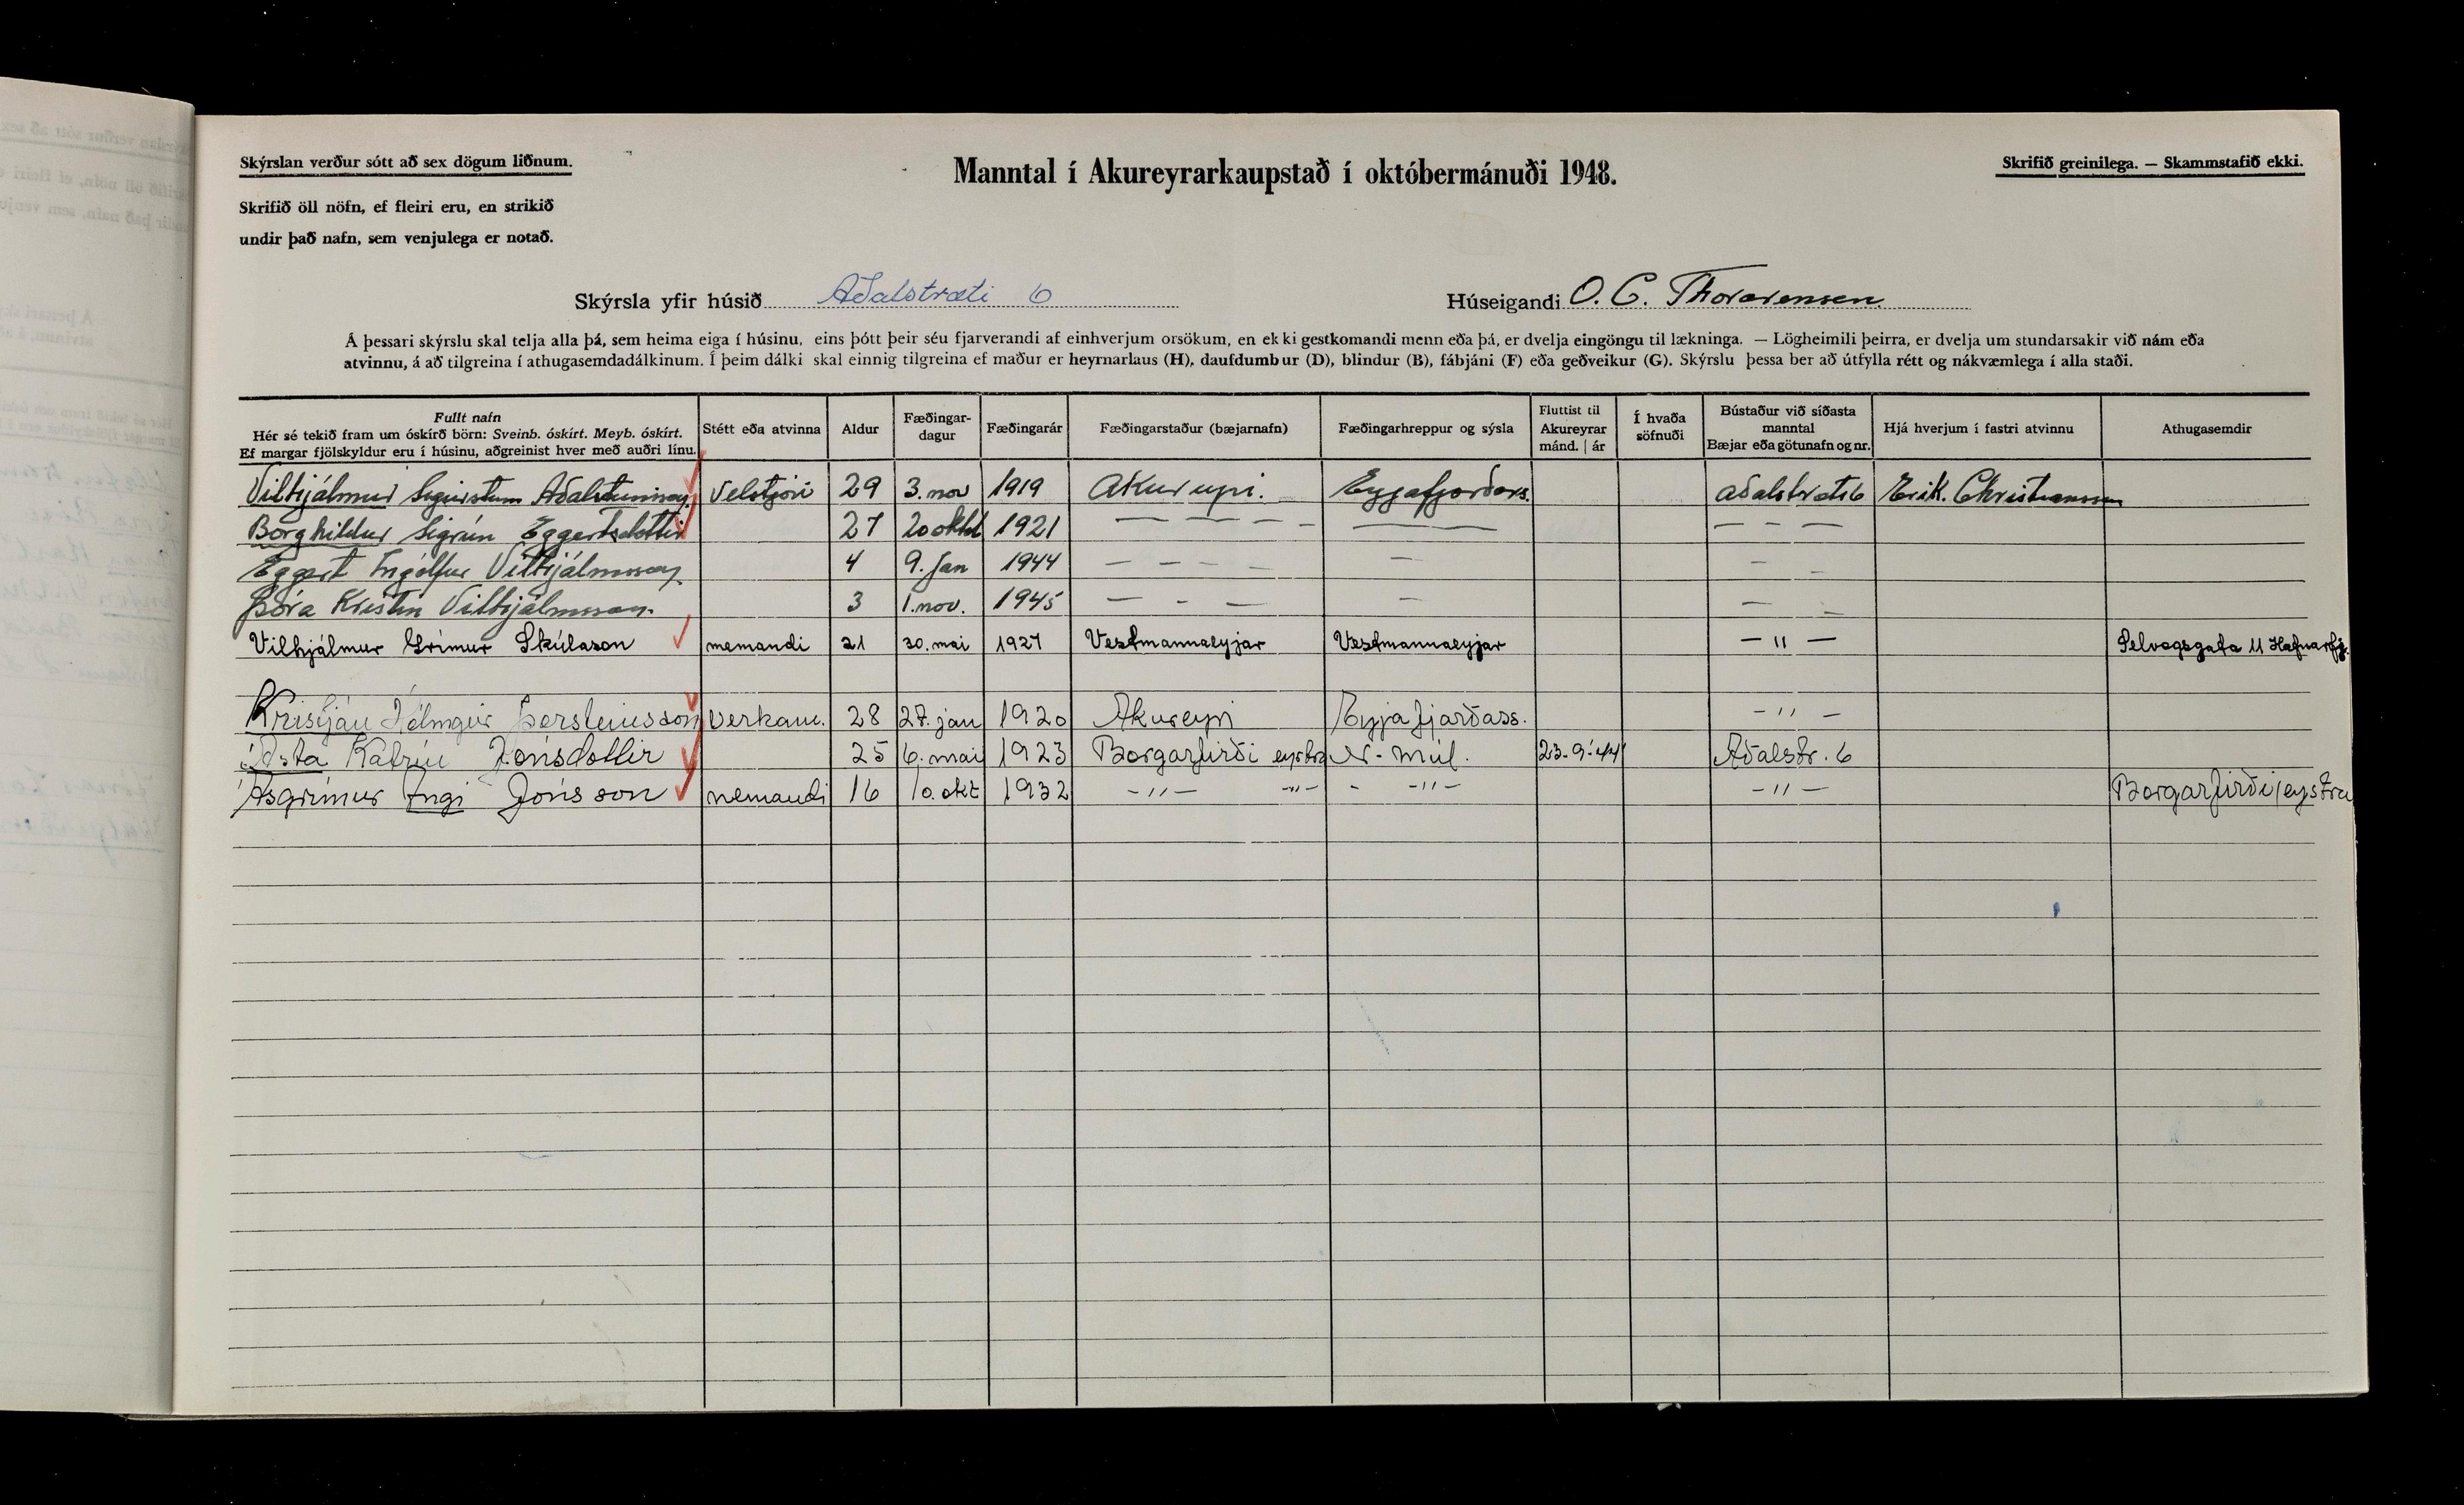 Skýrslan verður sótt að sex dögum liðnum.
Manntal í Akureyrarkaupstað í októbermánuði 1948.
Skrifið greinilega. — Skammstafið ekki.
Skrifið öll nöfn, ef fleiri eru, en strikið
undir það nafn, sem venjulega er notað.
Skýrsla yfir húsið Aðalstræti 6 Húseigandi O. C. Thorarensen
Á þessari skýrslu skal telja alla þá, sem heima eiga í húsinu, eins þótt þeir séu fjarverandi af einhverjum orsökum, en ekki gestkomandi menn eða þá, er dvelja eingöngu til lækninga. — Lögheimili þeirra, er dvelja um stundarsakir við nám eða
atvinnu, á að tilgreina í athugasemdadálkinum. Í þeim dálki skal einnig tilgreina ef maður er heyrnarlaus (H), daufdumbur (D), blindur (B), fábjáni (F) eða geðveikur (G). Skýrslu þessa ber að útfylla rétt og nákvæmlega í alla staði.
Fullt nafn
Hér sé tekið fram um óskírð börn: Sveinb. óskírt. Meyb. óskírt.
Ef margar fjölskyldur eru í húsinu, aðgreinist hver með auðri línu.
Stétt eða atvinna
Aldur
Fæðingar-
dagur
Fæðingarár
Fæðingarstaður (bæjarnafn)
Fæðingarhreppur og sýsla
Fluttist til
Akureyrar
mánd. | ár
Í hvaða
söfnuði
Bústaður við síðasta
manntal
Bæjar eða götunafn og nr.
Hjá hverjum í fastri atvinnu
Athugasemdir
Vilhjálmur Aðalsteinsson Velstjóri 29 3. nov 1919 Akureyri. Eyjafjarðars. Aðalstræti 6 Erik. Christiansen
Borghildur Sigrún Eggertsdóttir 27 20 okt 1921 — — — — — — — —
Eggert Ingólfur Vilhjálmsson 4 9. Jan 1944 — — — — — — —
Þóra Kristín Vilhjálmsson. 3 1. nov. 1945 — - — — — —
Vilhjálmur Grímur Skúlason nemandi 21 30. mai 1927 Vestmannaeyjar Vestmannaeyjar — " — Selvogsgata 11 Hafnarfj.
Kristján Hólmgeir Þorsteinsson verkam. 28 27. jan 1920 Akureyri Eyjafjarðass. - " -
Ásta Katrín Jónsdóttir 25 6. mai 1923 Borgarfirði eystra N-Múl. 23-9-'44 Aðalstr. 6
Ásgrímur Ingi Jónsson nemandi 16 10. okt 1932 - " - - " - - - " - - " - Borgarfirði eystra